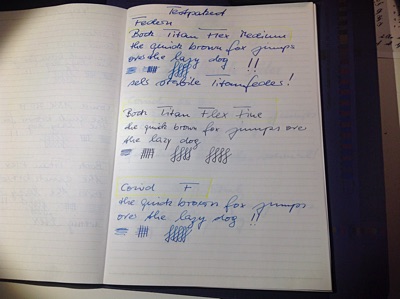 Testpatient
Federn
Bock Titan Flex Medium
the quick brown fox jumps
over the lazy dog !!
Titanfeder!
Bock Titan Flex Fine
the quick brown fox jumps over
the lazy dog
F
the quick brown fox jumps
over the lazy dog !!